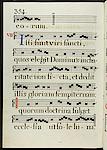 354.
eorum.
Isti sunt viri sancti,
quos elegit Dominus in cha-
ritate non ficta, et dedit
illis gloriam sempiternam:
quorum doctrina fulget
ecclesia